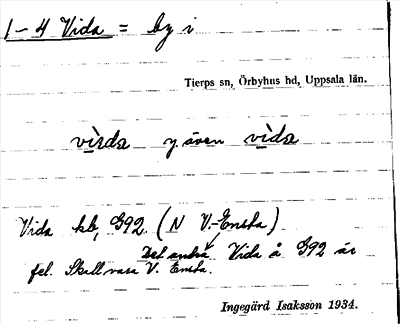 1-4 Vida = by i
Tierps sn, Örbyhus hd, Uppsala län.
vìsda y. även vìda
Vida kb, G92 (N V.-Ensta)
Det andra Vida å G92 är
fel. Skall vara V. Ensta.
Ingegärd Isaksson 1934.